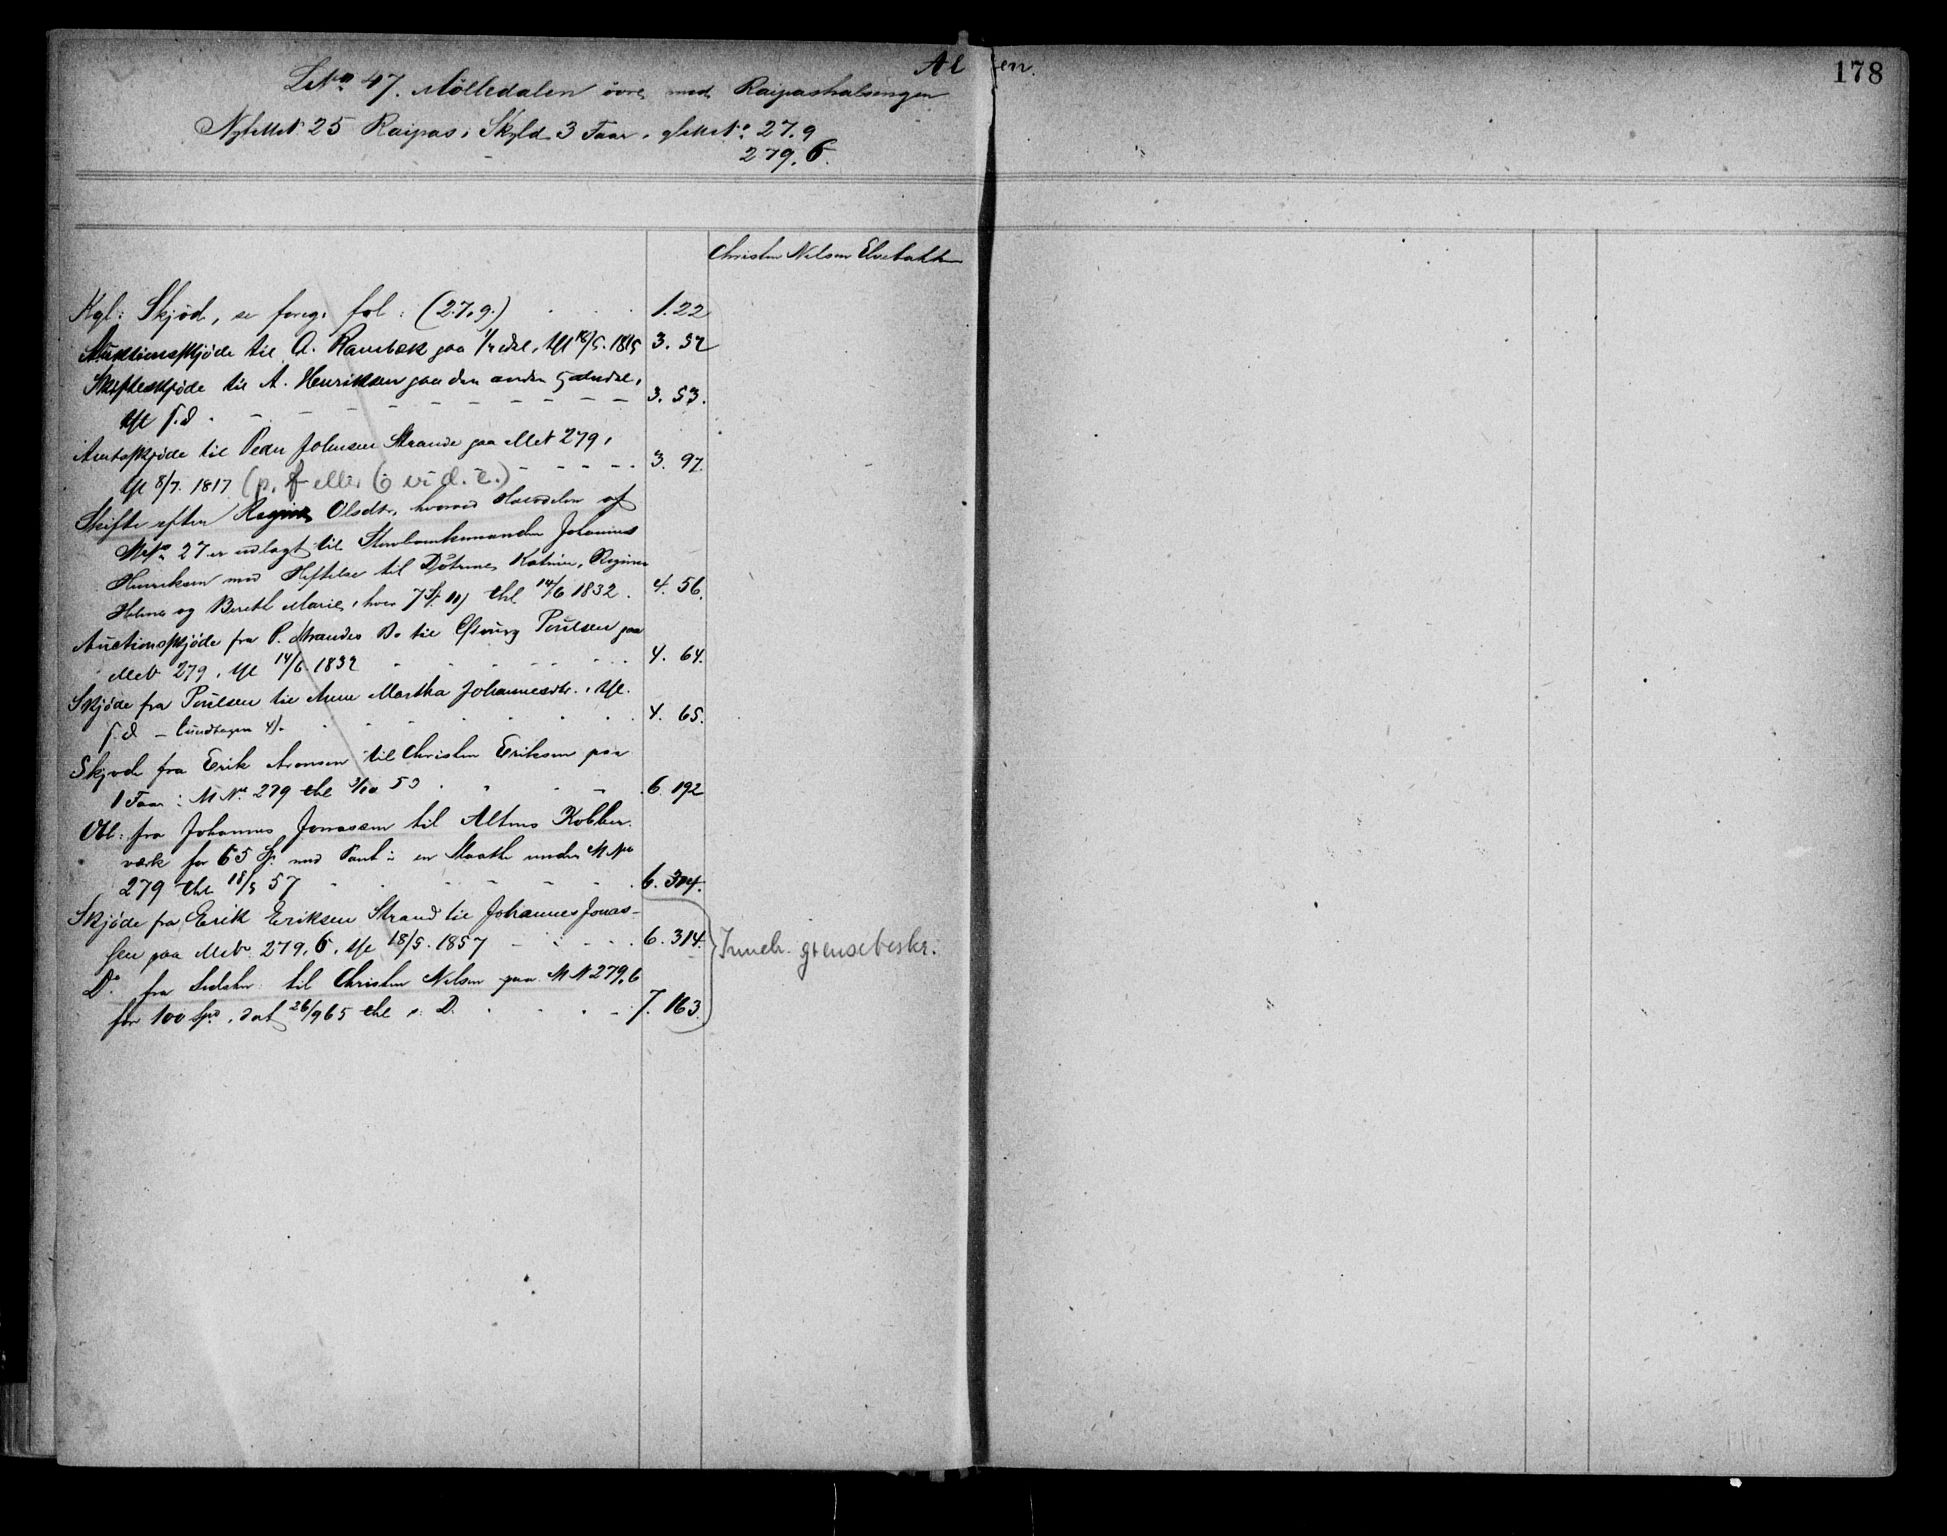 Alten.
178
LNo 47. Mölledalen övre med Raipashalsengen
Nyt MatN 25 Raipas, Skyld 3 Faar, gl MatNo 27.9
279.6.
Christen Nilsen Elvebakken
Kgl: Skjöde, se foreg. fol: (27.9.) 1.22
Auktionsskjöde til A. Rambæk paa 1/2 del, thl 18/5. 1815 3. 52
Skifteskjöde til A. Henriksen paa den anden halvdel,
thl s.d. 3. 53.
Amtsskjöde til Peder Johnsen Strande paa MatN 279,
thl 8/7. 1817 (p. f eller 6 vid. e.) 3. 97.
Skifte efter Regine Olsdtr, hvorved Halvdelen af
MNo 27 er udlagt til Stervboenkemanden Johannes
Henriksen med Heftelse til Döttrene Katrine, Regine
Helene og Bereth Marie, hver 7 thl 14/6 1832. 4. 56.
Auctionsskjöde fra P. Strandes Bo til Poulsen paa
MatN 279, thl 14/6 1832 4. 64.
Skjöde fra Poulsen til Anne Martha Johannesdtr., thl.
s.d. 4. 65.
Skjöde fra Erik Aronsen til Christen Eriksen paa
1 Faar i MNo 279 thl 3/10 53 6. 192
Obl: fra Johannes Jonassen til Altens Kobber-
værk for 65 Sp. med Pant i en under MNo
279 thl 18/5 57 6. 314.
Skjöde fra Erik Eriksen Strand til Johannes Jonas-
sen paa MatN 279,6, thl 18/5. 1857 6. 314.
Inneh. grensebeskr.
Do fra Sidste til Christen Nilsen paa MN 279,6
for 100 Spd, dat 26/9 65 thl s. D. 7. 163.